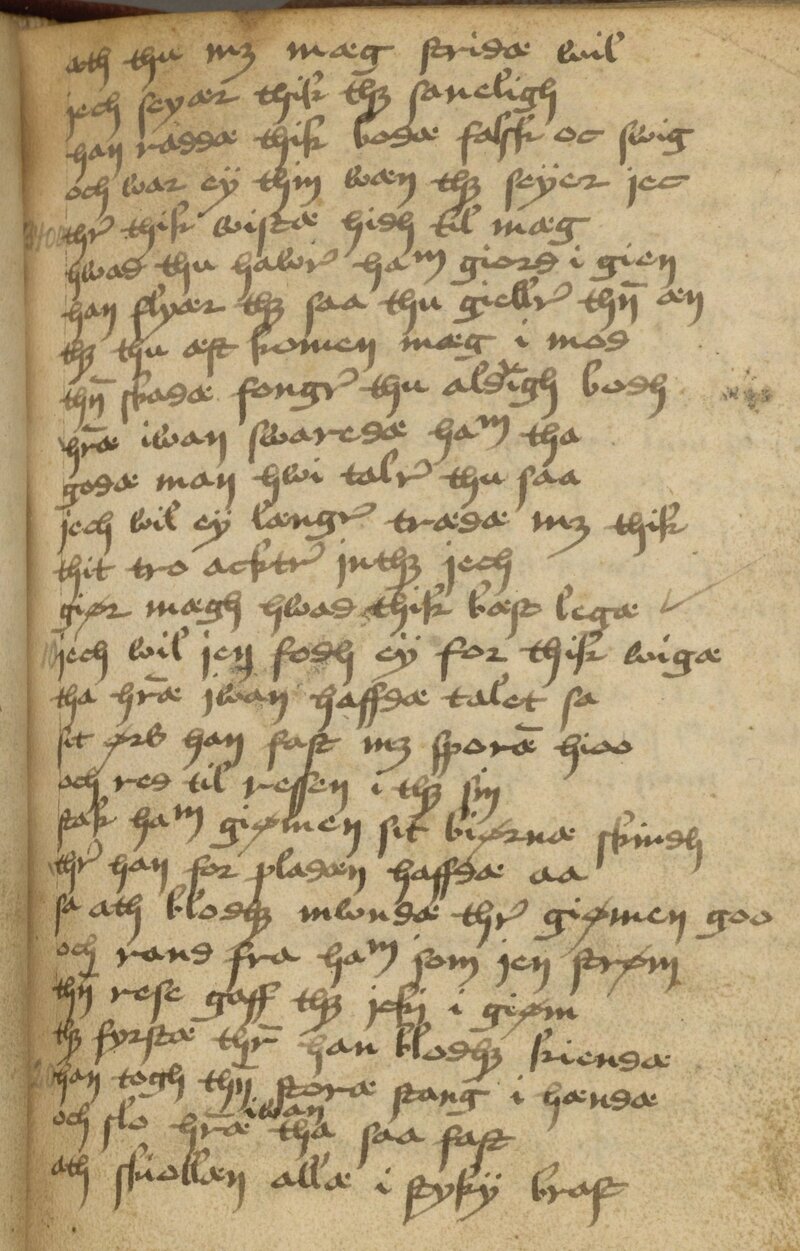 ath thu mꝫ mæg stridæ wil
jech seyær thik thꝫ saneligh
han raddæ thik bodæ falsk oc swig
och war eÿ thin wæn thꝫ seÿer jec
thr̛ thik wistæ hidh til mæg
hwad thu hawr̛ haᵐ giord i gien
han flyær thꝫ saa thu giellr̛ thn̄ æn
thꝫ thu æst komen mæg i mod
thn̄ skadæ fongr̛ thu aldrigh bodh
hr̄æ iwan swaredæ haᵐ tha
godæ man hwi talr̛ thu saa
jech wil eÿ længr̛ trædæ mꝫ thik
thit tro acktr̛ jnthꝫ jech
giør mægh hwad thik bæst legæ
jech wil jen fodh eÿ for thik wigæ
tha hr̄æ jwan haffdæ talet sa
sit ørs han fast mꝫ sporæ̅ hioo
och red til ressen i thꝫ sin
stak haᵐ giømen sit biørnæ skindh
thr̛ han for pladæn haffdæ aa
sa ath blodhꝫ mwndæ thr̛ giømen goo
och rand fra haᵐ som jen strøm
thn̄ rese gaff thꝫ jcki i giøm
thꝫ fyrstæ thr̄ han blodhꝫ kiendæ
han togh thn̄ storæ stang i hændæ
och slo hr̄æ iwan tha saa fast
ath skiollæn allæ i stykÿ brast